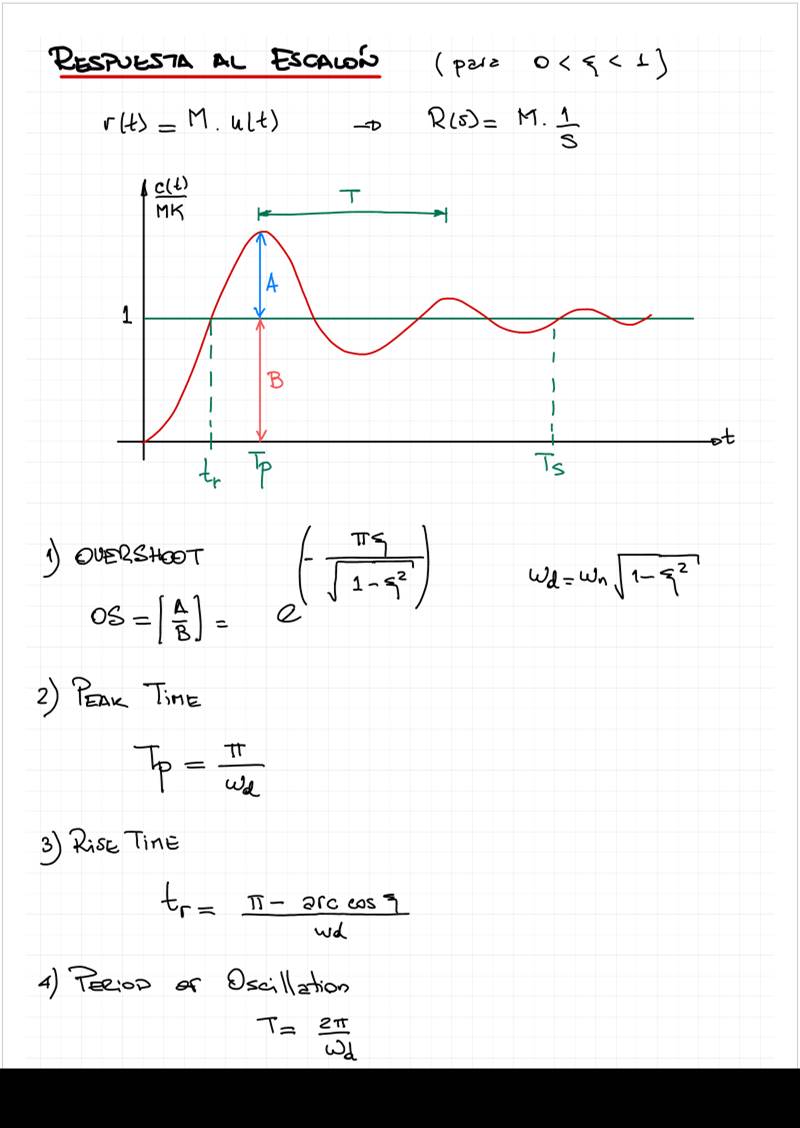 RESPUESTA AL ESCALÓN (para 0 < ξ < 1)
r(t) = M. u(t) → R(s) = M. 1/s
c(t)/MK
T
A
1
B
t
tr Tp Ts
1) OVERSHOOT
OS = [A/B] = e^(- πξ/√(1-ξ²)) ωd = ωn √(1-ξ²)
2) PEAK TIME
Tp = π/ωd
3) RISE TIME
tr = (π - arc cos ξ)/ωd
4) PERIOD OF Oscillation
T = 2π/ωd